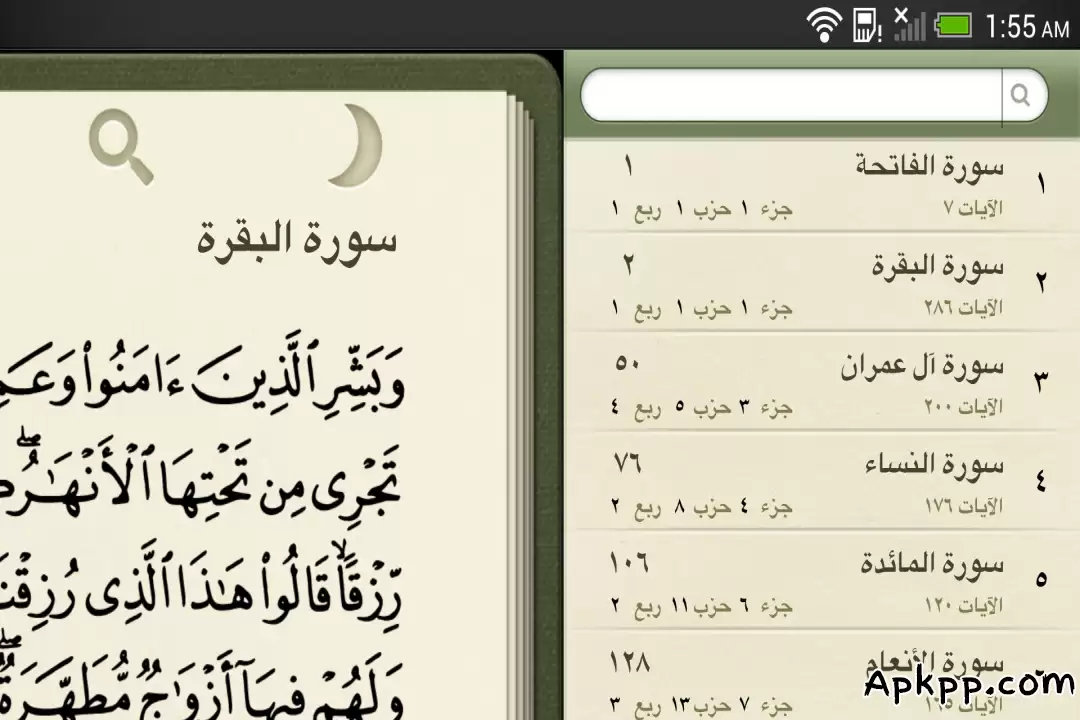 1:55 AM
سورة البقرة
وَبَشِّرِ ٱلَّذِينَ ءَامَنُوا۟ وَعَمِ
تَجْرِى مِن تَحْتِهَا ٱلْأَنْهَٰرُ ۖ
رِّزْقًا ۙ قَالُوا۟ هَٰذَا ٱلَّذِى رُزِقْنَا
وَلَهُمْ فِيهَآ أَزْوَٰجٌ مُّطَهَّرَةٌ ۖ
١ سورة الفاتحة ١
الآيات ٧ جزء ١ حزب ١ ربع ١
٢ سورة البقرة ٢
الآيات ٢٨٦ جزء ١ حزب ١ ربع ١
٣ سورة آل عمران ٥٠
الآيات ٢٠٠ جزء ٣ حزب ٥ ربع ٤
٤ سورة النساء ٧٦
الآيات ١٧٦ جزء ٤ حزب ٨ ربع ٢
٥ سورة المائدة ١٠٦
الآيات ١٢٠ جزء ٦ حزب ١١ ربع ٢
سورة الأنعام ١٢٨
جزء ٧ حزب ١٣ ربع ٣
Apkpp.com